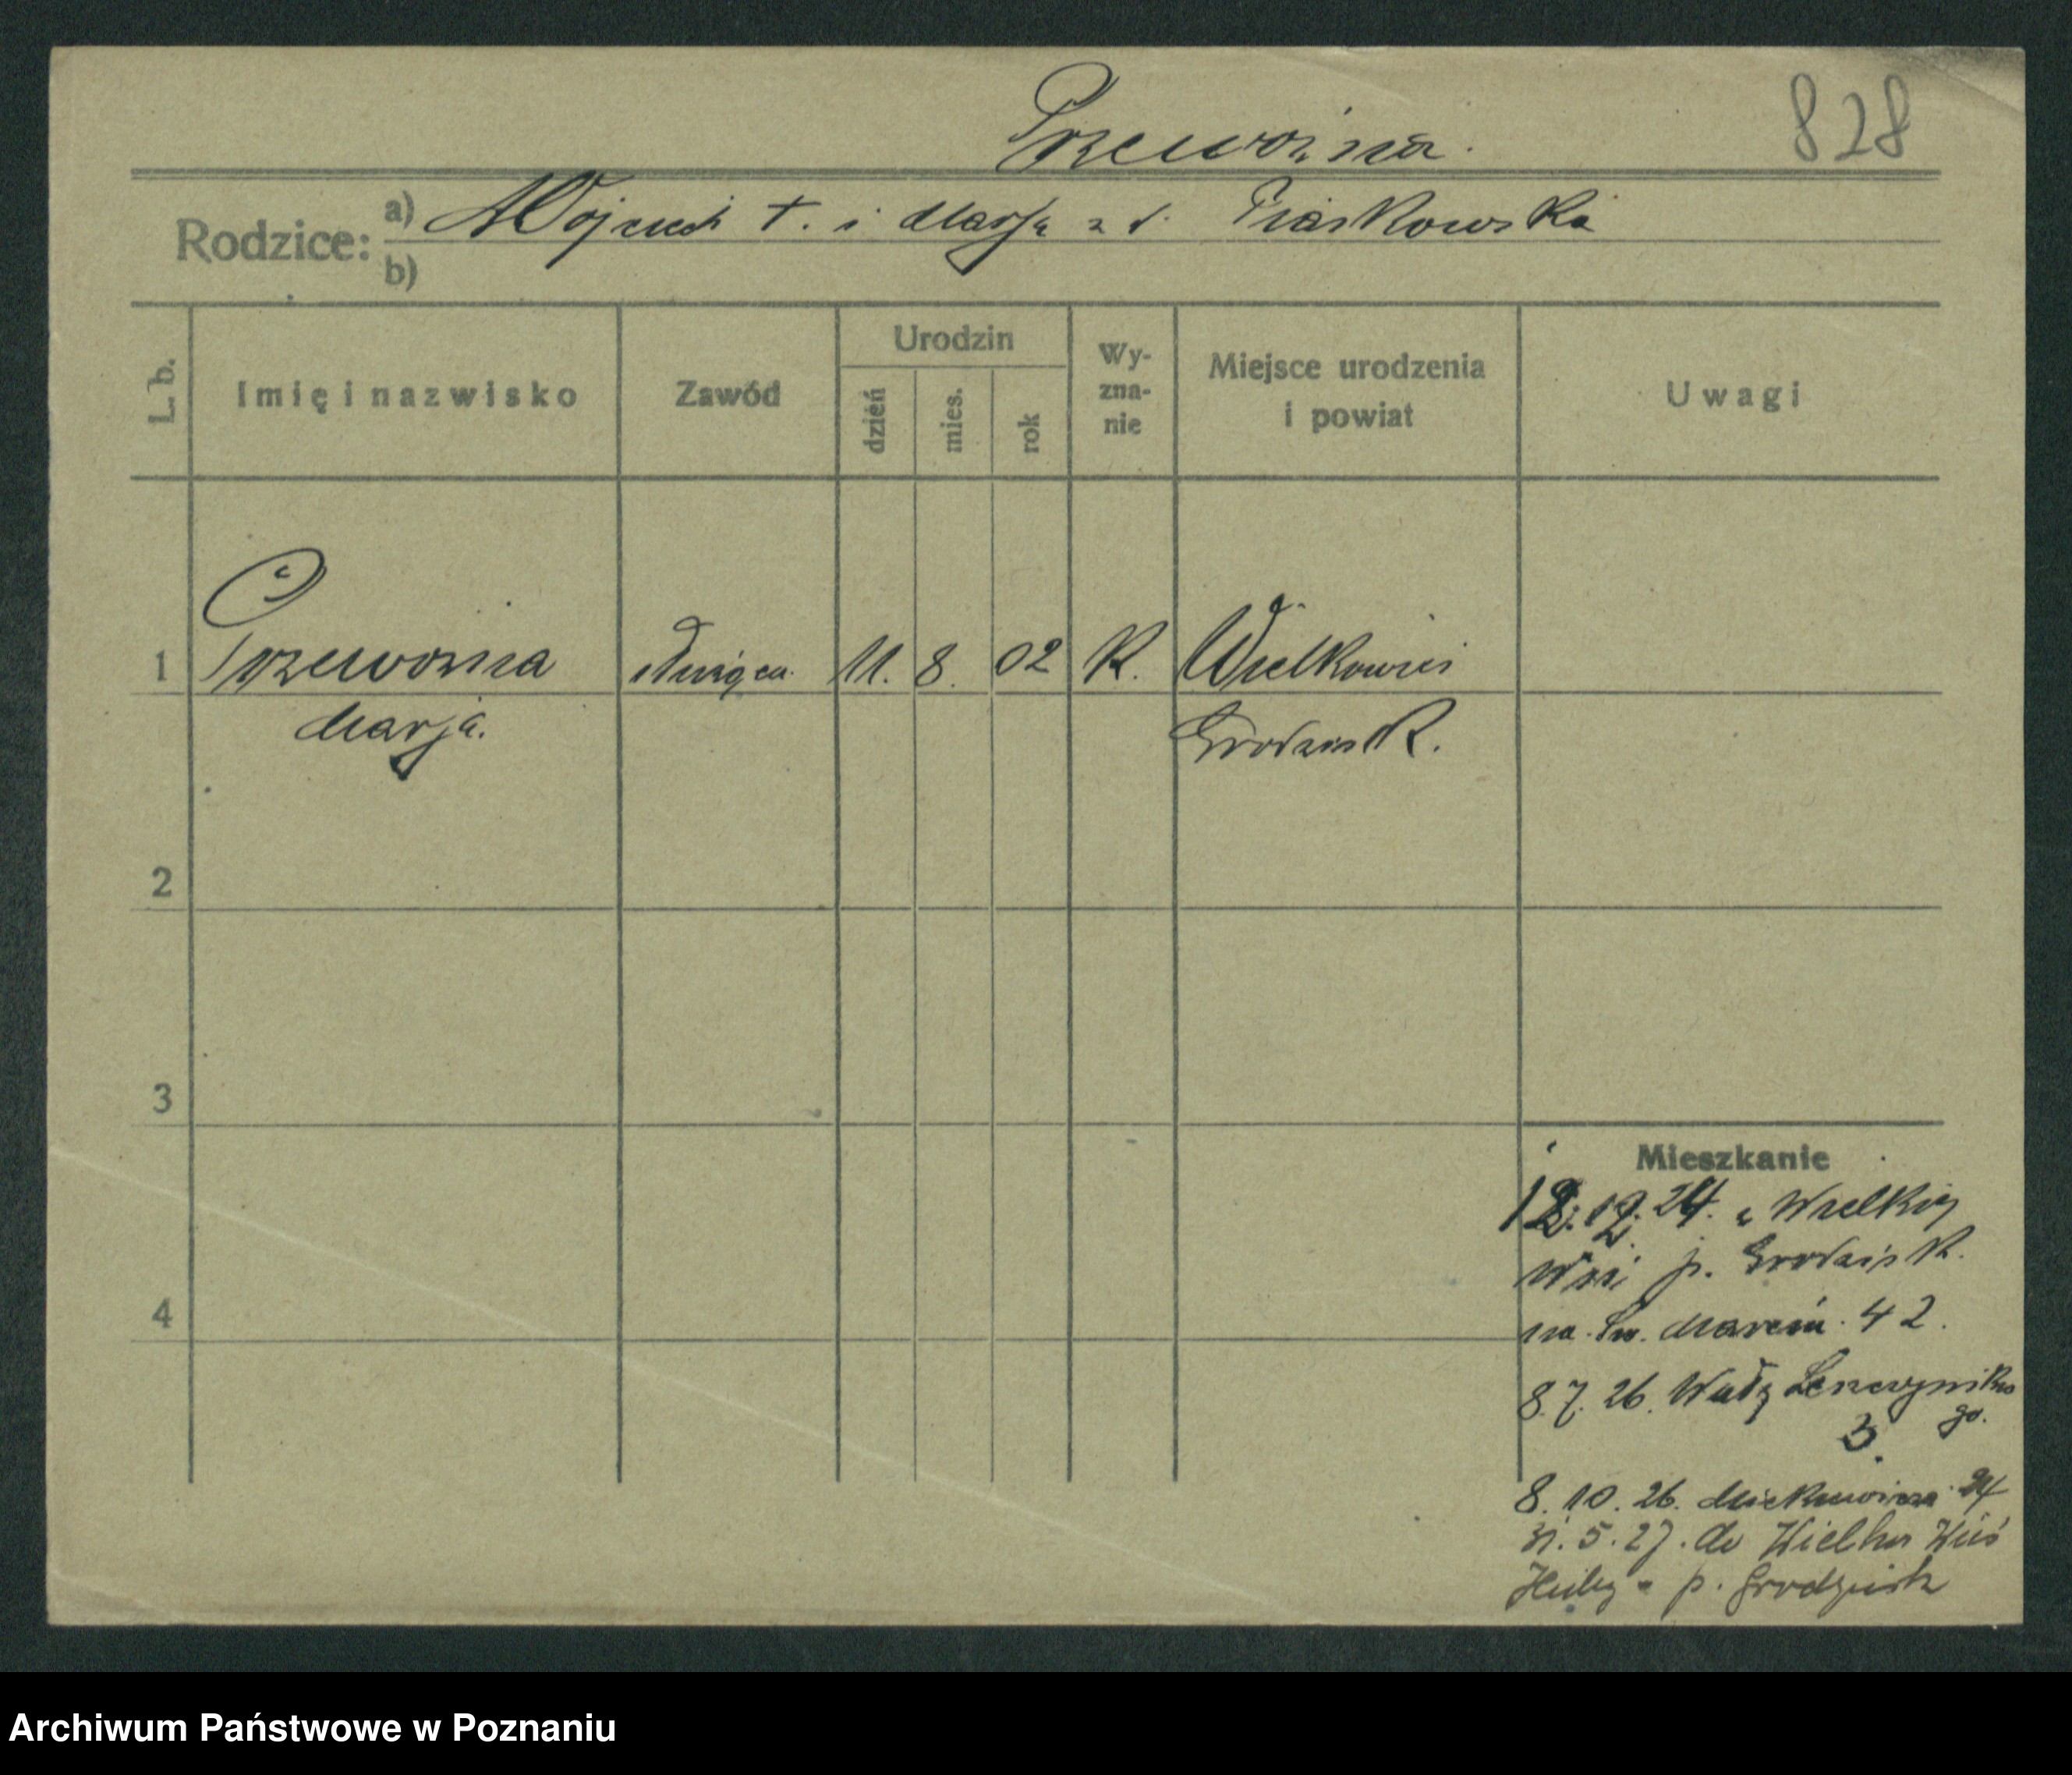 Przewoźna.
828
Rodzice: a) Wojciech †. i Marja z d. Piaskowska
b)
L. b.
Imię i nazwisko
Zawód
Urodzin
dzień
mies.
rok
Wy-
zna-
nie
Miejsce urodzenia
i powiat
Uwagi
1 Przewoźna służąca. 11. 8. 02 K. Wielkawieś
Marja. Grodzisk.
2
3
4
Mieszkanie
12. 24. z Wielkiej
Wsi p. Grodzisk.
na Św. Marcin. 42.
8. 7. 26. Wały Leszczyńskie
go.
3.
8. 10. 26. Mickiewicza 24
31. 5. 27. do Wielka Wieś
p. Grodzisk
Archiwum Państwowe w Poznaniu